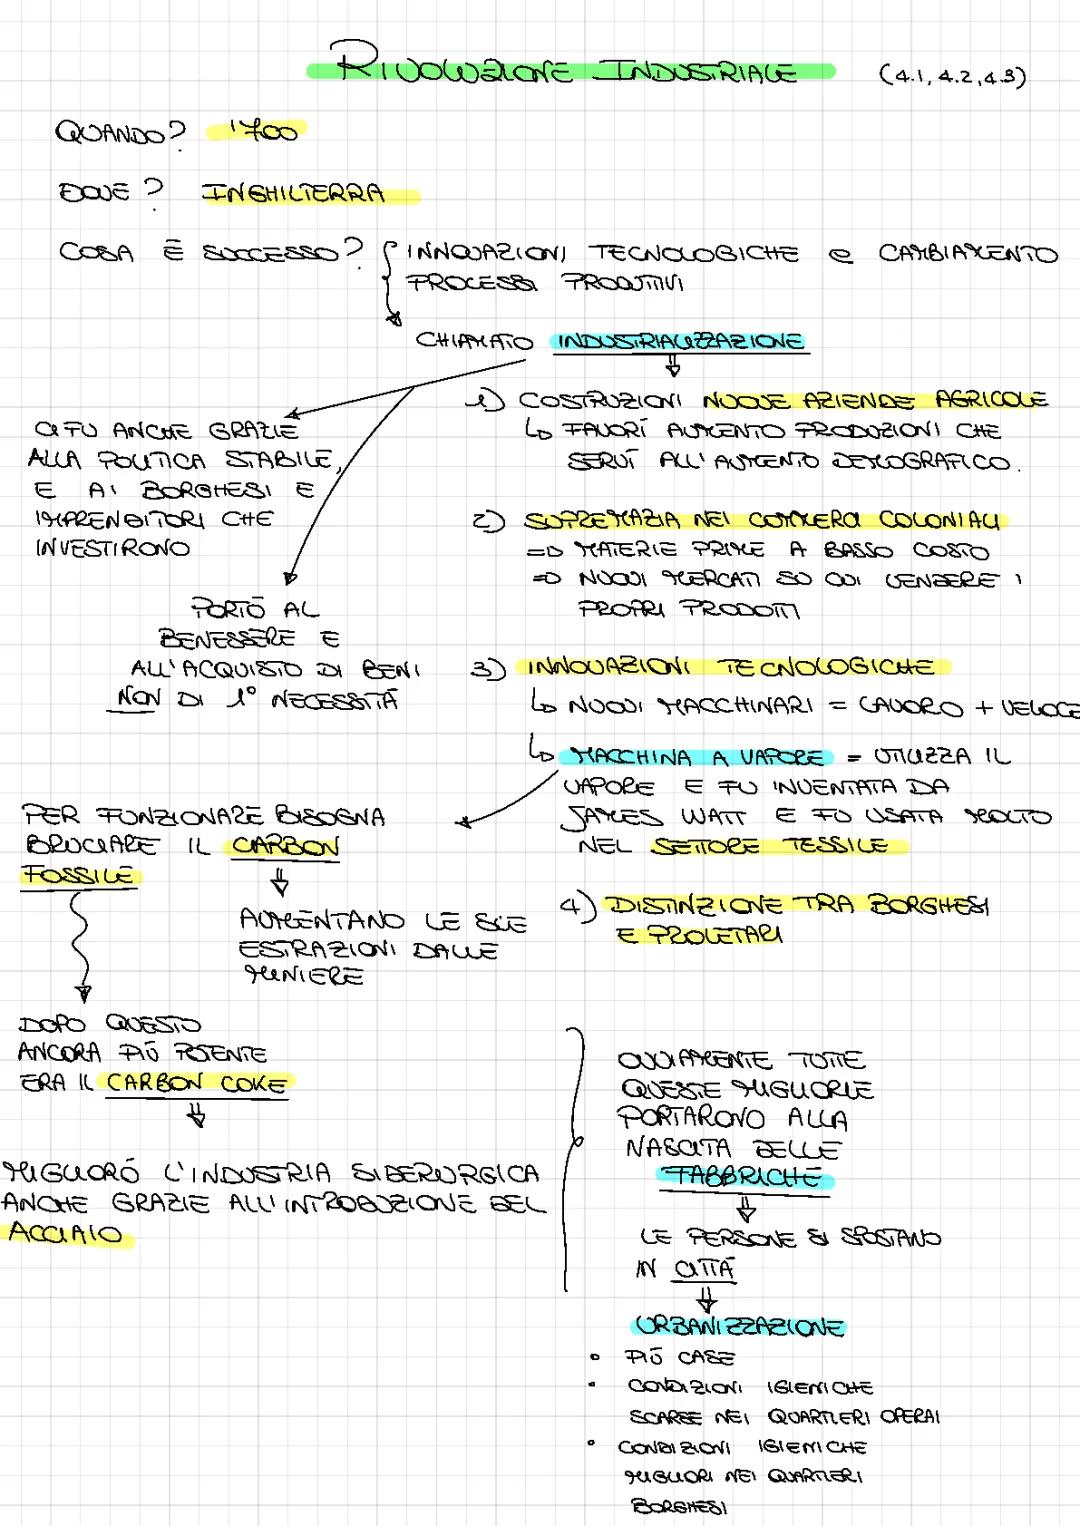 RIVOLUZIONE INDUSTRIALE (4.1, 4.2, 4.3)
QUANDO? '700
DOVE? INGHILTERRA
COSA È SUCCESSO? INNOVAZIONI TECNOLOGICHE e CAMBIAMENTO
PROCESSI PRODUTTIVI
CHIAMATO INDUSTRIALIZZAZIONE
CI FU ANCHE GRAZIE
ALLA POLITICA STABILE,
E AI BORGHESI E
IMPRENDITORI CHE
INVESTIRONO
PORTÒ AL
BENESSERE E
ALL'ACQUISTO DI BENI
NON DI 1° NECESSITÀ
1) COSTRUZIONI NUOVE AZIENDE AGRICOLE
↳ FAVORÌ AUMENTO PRODUZIONI CHE
SERVÌ ALL'AUMENTO DEMOGRAFICO.
2) SUPREMAZIA NEI COMMERCI COLONIALI
=D MATERIE PRIME A BASSO COSTO
=D NUOVI MERCATI SU CUI VENDERE I
PROPRI PRODOTTI
3) INNOVAZIONI TECNOLOGICHE
↳ NUOVI MACCHINARI = LAVORO + VELOCE
↳ MACCHINA A VAPORE = UTILIZZA IL
VAPORE E FU INVENTATA DA
JAMES WATT E FU USATA MOLTO
NEL SETTORE TESSILE
4) DISTINZIONE TRA BORGHESI
E PROLETARI
PER FUNZIONARE BISOGNA
BRUCIARE IL CARBON
FOSSILE
AUMENTANO LE SUE
ESTRAZIONI DALLE
MINIERE
DOPO QUESTO
ANCORA PIÙ POTENTE
ERA IL CARBON COKE
MIGLIORÒ L'INDUSTRIA SIDERURGICA
ANCHE GRAZIE ALL'INTRODUZIONE DEL
ACCIAIO
OVVIAMENTE TUTTE
QUESTE MIGLIORIE
PORTARONO ALLA
NASCITA DELLE
FABBRICHE
LE PERSONE SI SPOSTANO
IN CITTÀ
URBANIZZAZIONE
• PIÙ CASE
• CONDIZIONI IGIENICHE
SCARSE NEI QUARTIERI OPERAI
• CONDIZIONI IGIENICHE
MIGLIORI NEI QUARTIERI
BORGHESI